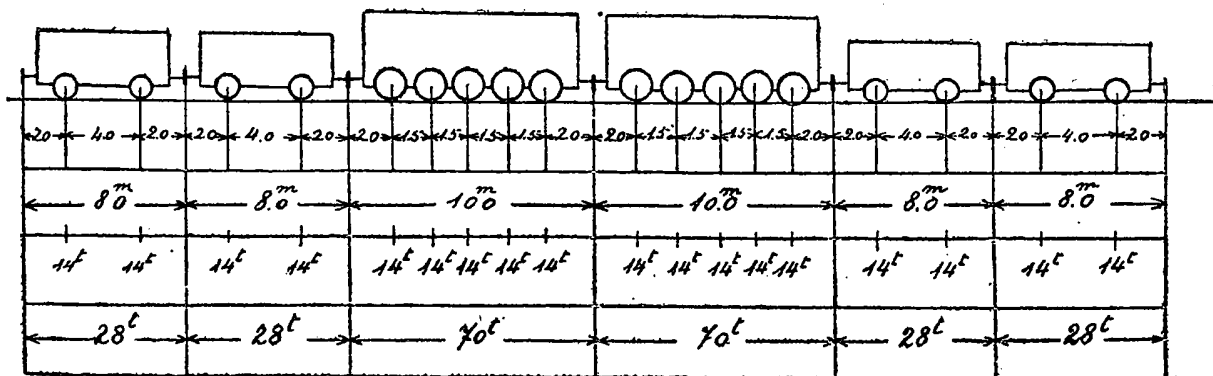 2.0 4.0 2.0 2.0 4.0 2.0 2.0 1.5 1.5 1.5 1.5 2.0 2.0 1.5 1.5 1.5 1.5 2.0 2.0 4.0 2.0 2.0 4.0 2.0
8.0m 8.0m 10.0m 10.0m 8.0m 8.0m
14t 14t 14t 14t 14t 14t 14t 14t 14t 14t 14t 14t 14t 14t 14t 14t 14t 14t
28t 28t 70t 70t 28t 28t